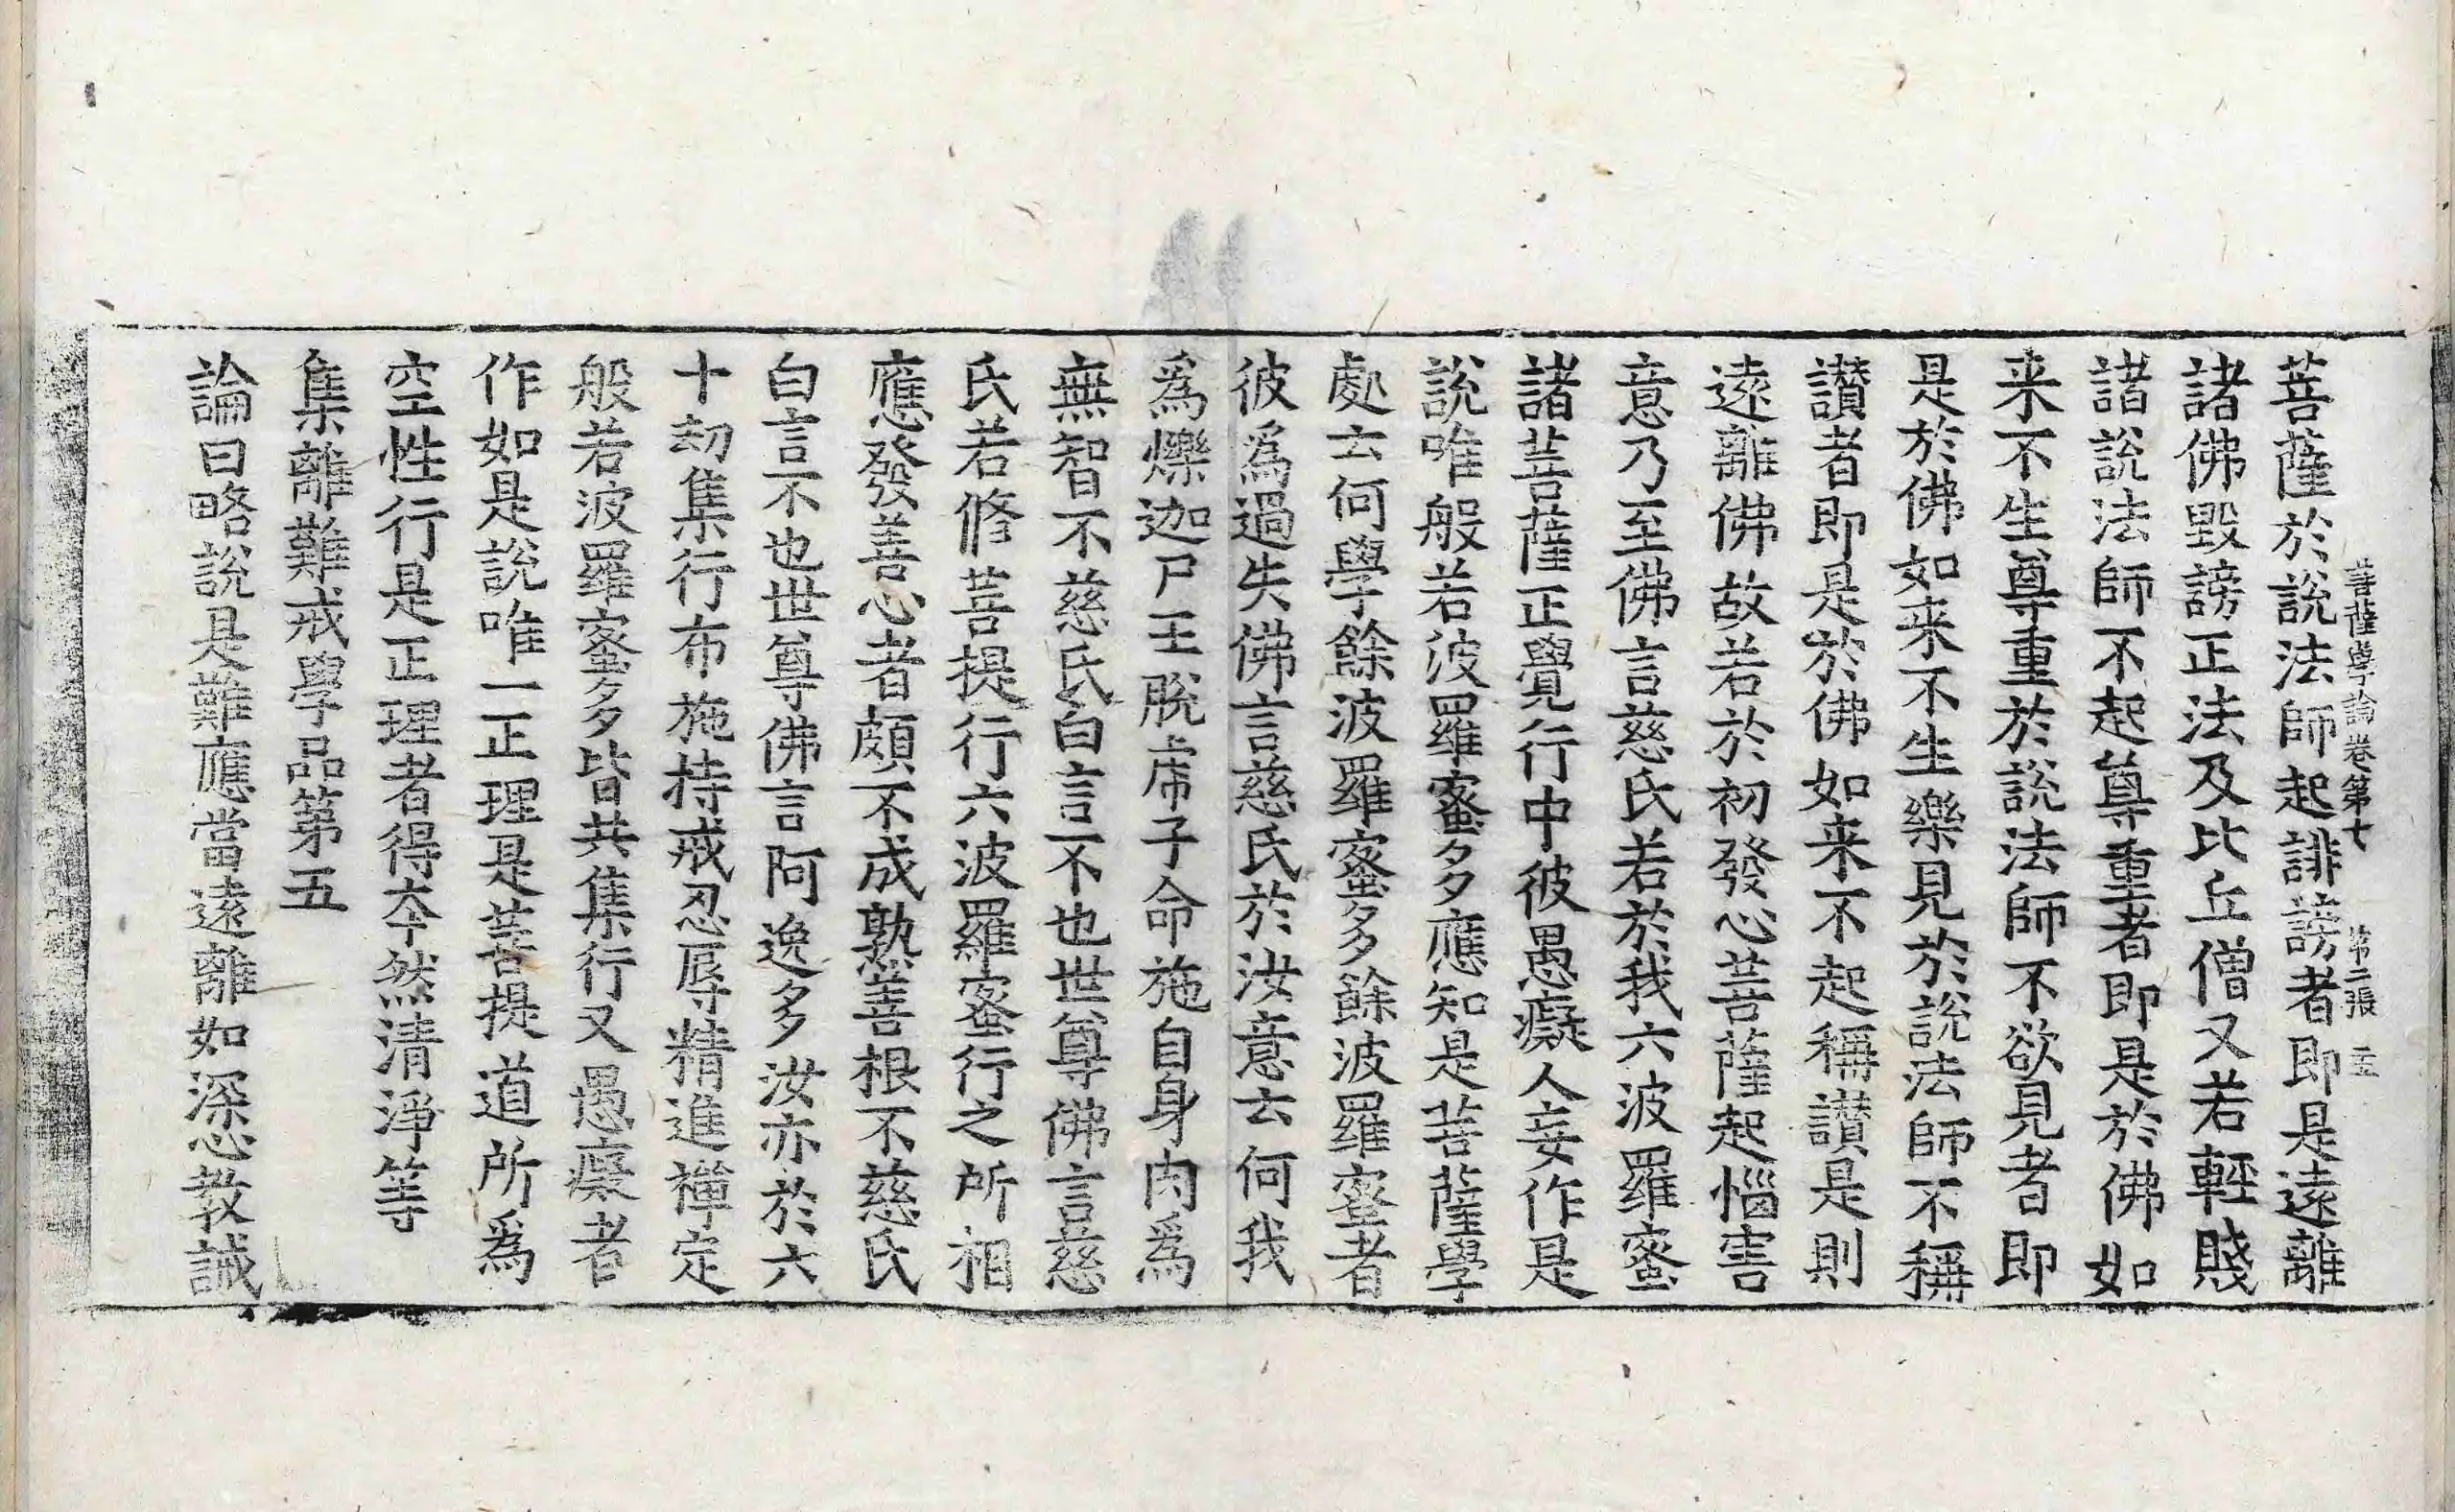 菩薩學論卷第七　第二張　主
菩薩於說法師起誹謗者即是遠離
諸佛毀謗正法及比丘僧又若輕賤
諸說法師不起尊重者即是於佛如
来不生尊重於說法師不欲見者即
是於佛如来不生樂見於說法師不稱
讃者即是於佛如来不起稱讃是則
遠離佛故若於初發心菩薩起惱害
意乃至佛言慈氏若於我六波羅蜜
諸菩薩正覺行中彼愚癡人妄作是
說唯般若波羅蜜多應知是菩薩學
處云何學餘波羅蜜多餘波羅蜜者
彼爲過失佛言慈氏於汝意云何我
爲爍迦尸王脫虎子命施自身肉爲
無智不慈氏白言不也世尊佛言慈
氏若修菩提行六波羅蜜行之所相
應發善心者頗不成熟善根不慈氏
白言不也世尊佛言阿逸多汝亦於六
十劫集行布施持戒忍辱精進禪定
般若波羅蜜多皆共集行又愚癡者
作如是說唯一正理是菩提道所爲
空性行是正理者得夲然清淨等
集離難戒學品第五
論曰略說是難應當遠離如深心教誡